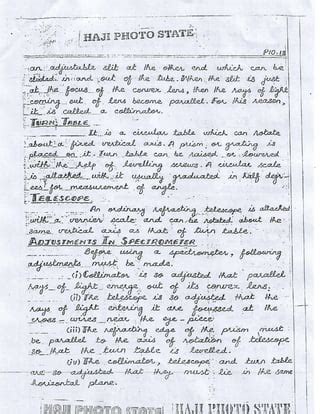 HAJI PHOTO STATE
PTO.12
an adjustable slit at the other end which can be
slided in and out of the tube. When the slit is just
at the focus of the convex lens, then the rays of light
coming out of lens become parallel. For this reason,
it is called a collimator.
TURN TABLE
It is a circular table which can rotate
about a fixed vertical axis. A prism or grating is
placed on it. Turn table can be raised or lowered
with the help of levelling screws. A circular scale
is attached with it usually graduated in half degr-
ees for measurement of angle.
TELESCOPE
An ordinary refracting telescope is attached
with a vernier scale and can be rotated about the
same vertical axis as that of turn table.
ADJUSTMENTS IN SPECTROMETER
Before using a spectrometer, following
adjustments must be made.
(i) Collimator is so adjusted that parallel
rays of light emerge out of its convex lens.
(ii) The telescope is so adjusted that the
rays of light entering it are focussed at the
cross-wires near the eye-piece
(iii) The refracting edge of the prism must
be parallel to the axis of rotation of telescope
so that the turn table is levelled.
(iv) The collimator, telescope and turn table
are so adjusted that they must lie in the same
horizontal plane.
HAJI PHOTO STATE HAJI PHOTO STATE